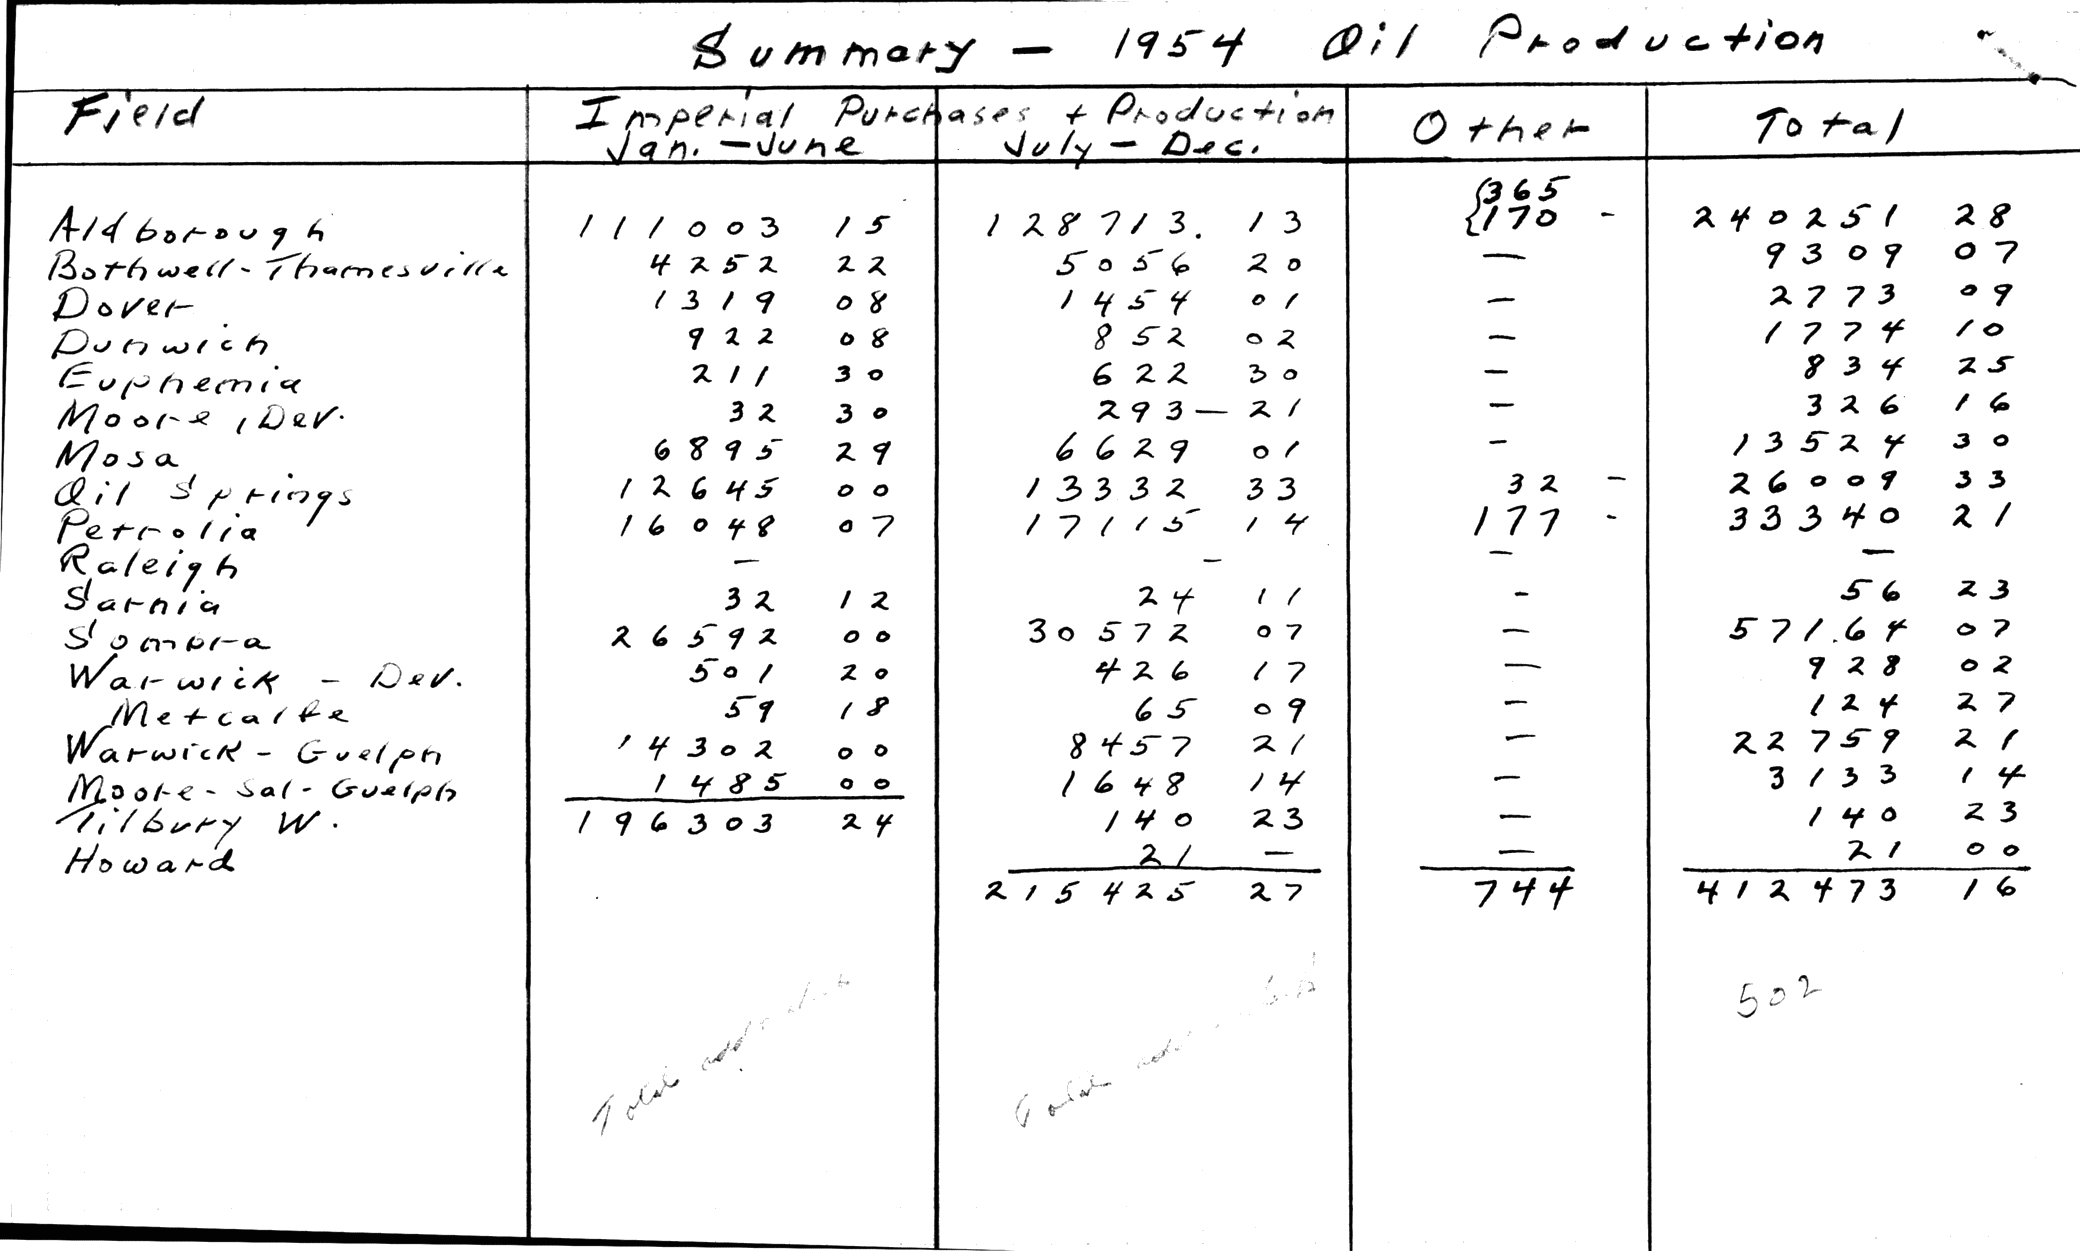 Summary - 1954 Oil Production
Field Imperial Purchases + Production Other Total
Jan. - June July - Dec.
{365
Aldborough 111003 15 128713. 13 {170 - 240251 28
Bothwell-Thamesville 4252 22 5056 20 — 9309 07
Dover 1319 08 1454 01 — 2773 09
Dunwich 922 08 852 02 — 1774 10
Euphemia 211 30 622 30 — 834 25
Moore, Dev. 32 30 293 — 21 — 326 16
Mosa 6895 29 6629 01 - 13524 30
Oil Springs 12645 00 13332 33 32 - 26009 33
Petrolia 16048 07 17115 14 177 - 33340 21
Raleigh — - — —
Sarnia 32 12 24 11 - 56 23
Sombra 26592 00 30572 07 — 571.64 07
Warwick - Dev. 501 20 426 17 — 928 02
Metcalfe 59 18 65 09 — 124 27
Warwick - Guelph 14302 00 8457 21 — 22759 21
Moore - Sal - Guelph 1485 00 1648 14 — 3133 14
Tilbury W. 196303 24 140 23 — 140 23
Howard 21 — — 21 00
215425 27 744 412473 16
502
Total